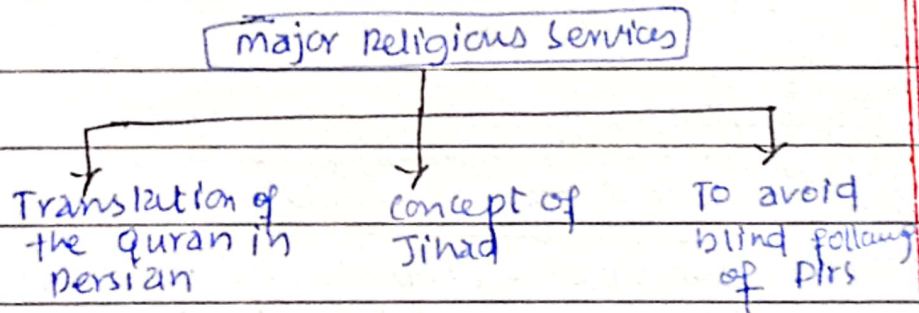 Major Religious Services
Translation of
the quran in
Persian
concept of
Jihad
To avoid
blind following
of Pirs